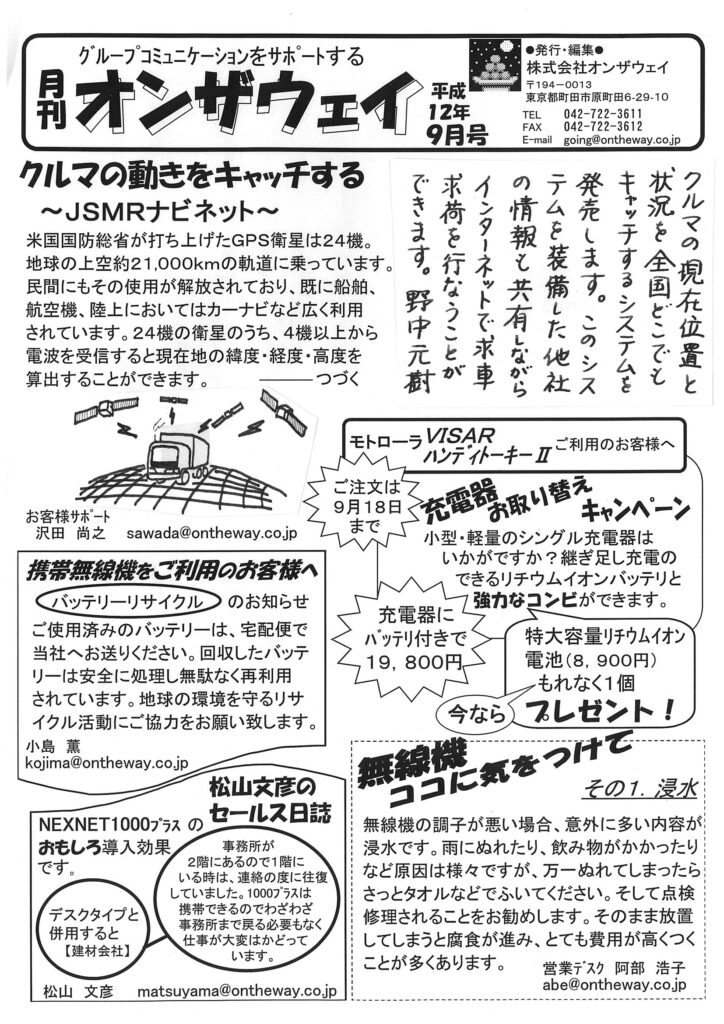 グループコミュニケーションをサポートする
月刊 オンザウェイ
平成
12年
9月号
●発行・編集●
株式会社オンザウェイ
〒194－0013
東京都町田市原町田6-29-10
TEL 042-722-3611
FAX 042-722-3612
E-mail going@ontheway.co.jp
クルマの動きをキャッチする
～JSMRナビネット～
米国国防総省が打ち上げたGPS衛星は24機。
地球の上空約21,000kmの軌道に乗っています。
民間にもその使用が解放されており、既に船舶、
航空機、陸上においてはカーナビなど広く利用
されています。24機の衛星のうち、4機以上から
電波を受信すると現在地の緯度・経度・高度を
算出することができます。 ―――つづく
クルマの現在位置と
状況を全国どこでも
キャッチするシステムを
発売します。このシス
テムを装備した他社
の情報も共有しながら
インターネットで求車
求荷を行なうことが
できます。野中元樹
お客様サポート
沢田 尚之 sawada@ontheway.co.jp
モトローラ VISAR
ハンディトーキーⅡ ご利用のお客様へ
ご注文は
9月18日
まで
充電器 お取り替え キャンペーン
小型・軽量のシングル充電器は
いかがですか？継ぎ足し充電の
できるリチウムイオンバッテリと
強力なコンビができます。
充電器に
バッテリ付きで
19，800円
特大容量リチウムイオン
電池（8，900円）
もれなく1個
プレゼント！
今なら
携帯無線機をご利用のお客様へ
バッテリーリサイクル のお知らせ
ご使用済みのバッテリーは、宅配便で
当社へお送りください。回収したバッテ
リーは安全に処理し無駄なく再利用
されています。地球の環境を守るリサ
イクル活動にご協力をお願い致します。
小島 薫
kojima@ontheway.co.jp
松山文彦の
セールス日誌
NEXNET1000プラス の
おもしろ導入効果
です。
デスクタイプと
併用すると
【建材会社】
事務所が
2階にあるので1階に
いる時は、連絡の度に往復
していました。1000プラスは
携帯できるのでわざわざ
事務所まで戻る必要もなく
仕事が大変はかどって
います。
松山 文彦 matsuyama@ontheway.co.jp
無線機
ココに気をつけて
その1．浸水
無線機の調子が悪い場合、意外に多い内容が
浸水です。雨にぬれたり、飲み物がかかったり
など原因は様々ですが、万一ぬれてしまったら
さっとタオルなどでふいてください。そして点検
修理されることをお勧めします。そのまま放置
してしまうと腐食が進み、とても費用が高くつく
ことが多くあります。
営業デスク 阿部 浩子
abe@ontheway.co.jp